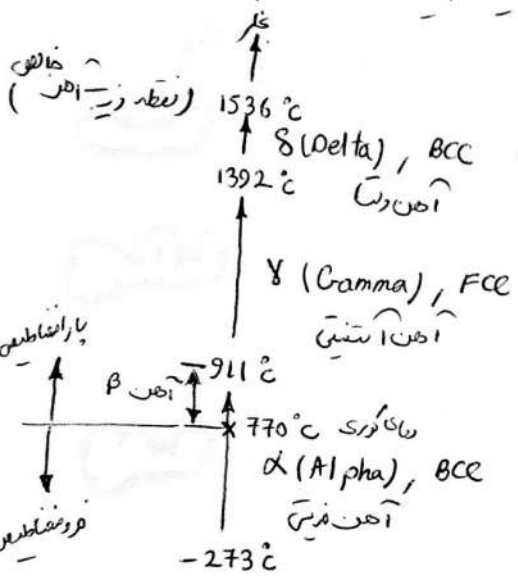 (نقطه ذوب آهن خالص) 1536 °c
δ (Delta) , BCC
1392 °c
آهن دلتا
γ (Gamma) , FCC
آهن آستنیتی
پارامغناطیس
911 °c
آهن β
770 °c دمای کوری
α (Alpha) , BCC
آهن فریتی
فرومغناطیس
-273 °c